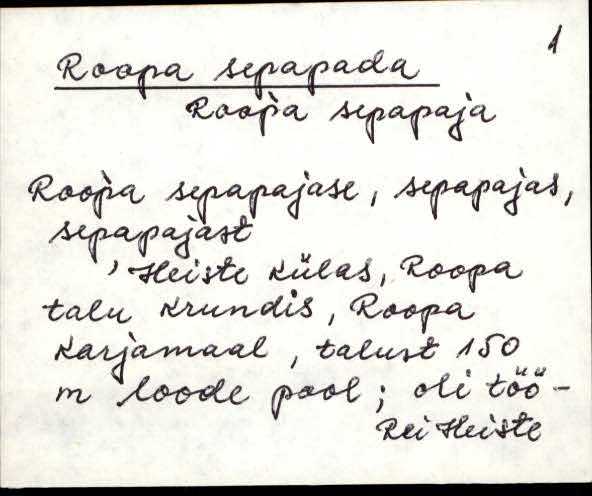 1
Roopa sepapada
Roop̀a sepapaja
Roop̀a sepapajase, sepapajas,
sepapajast
, Heiste külas, Roopa
talu krundis, Roopa
karjamaal, talust 150
m loode pool; oli töö-
Rei Heiste